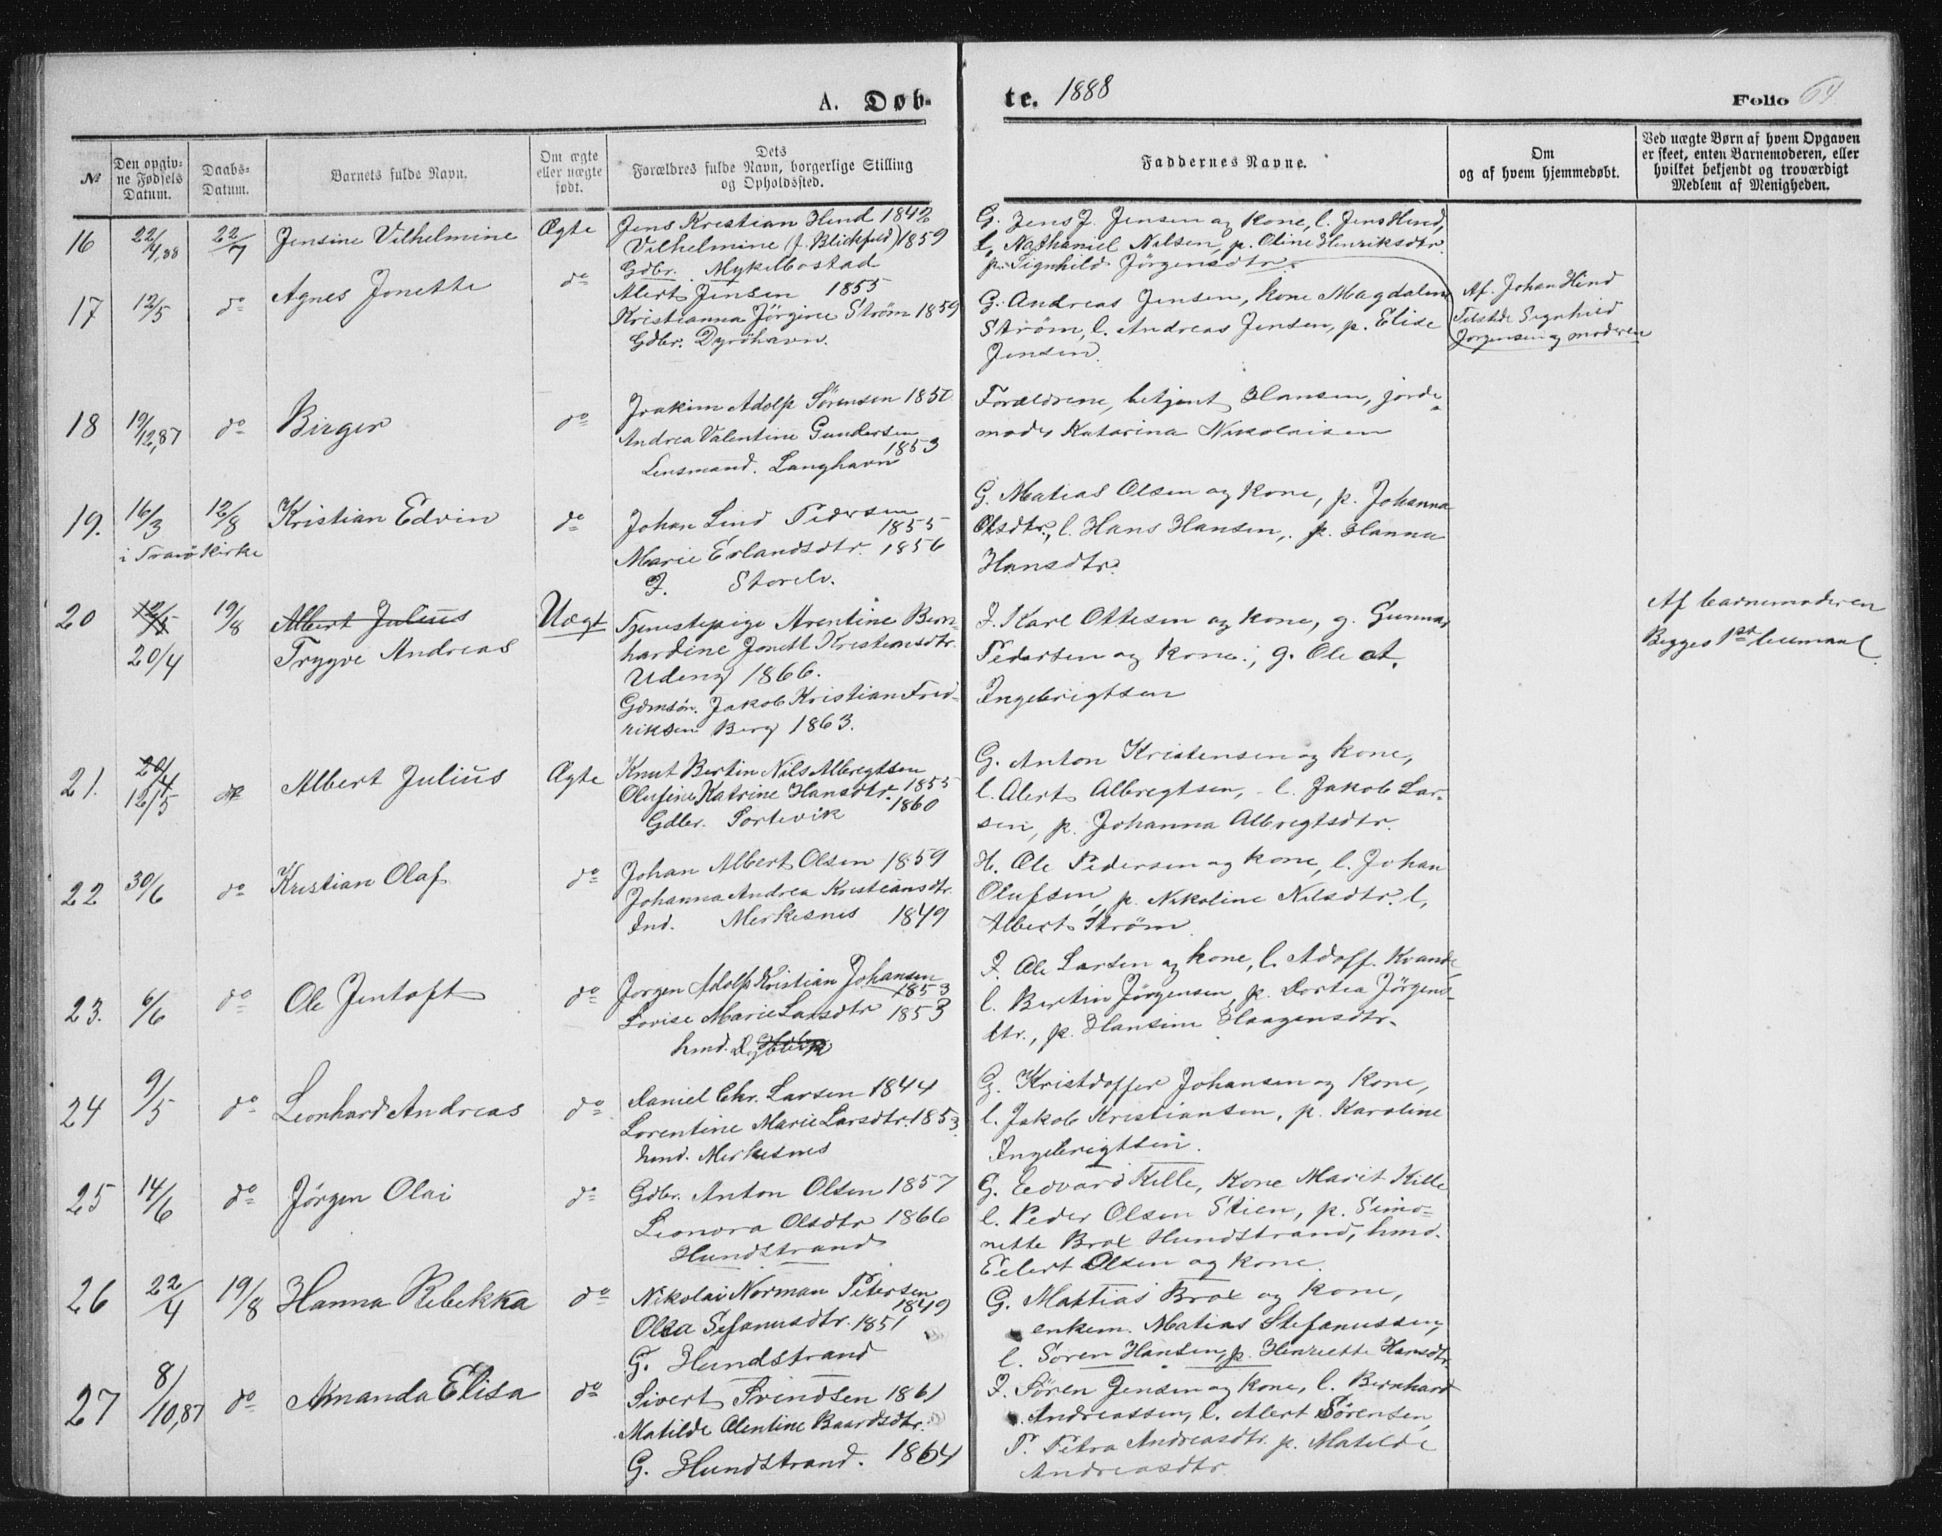 A. Døb-
te. 1888
Folio 64.
№
Den opgiv-
ne Fødsels
Datum.
Daabs-
Datum.
Barnets fulde Navn.
Om ægte
eller uægte
født.
Dets
Forældres fulde Navn, borgerlige Stilling
og Opholdssted.
Faddernes Navne.
Om
og af hvem hjemmedøbt.
Ved uægte Børn af hvem Opgaven
er skeet, enten Barnemoderen, eller
hvilket bekjendt og troværdigt
Medlem af Menigheden.
16 22/4,88 22/7 Jensine Vilhelmine Ægte
Jens Kristian Hind 1842
Vilhelmine (f. Blickfeld) 1859
Gdbr. Mykelbostad
G. Jens J. Jensen og kone, l. Jens Hind,
l. Nathaniel Nilsen, p. Oline Henriksdtr.
p. Signhild Jörgensdtr.
Af. Johan Hind
Tilstede Signhild
Jörgensen og moderen
17 12/5 do Agnes Jonette do
Alert Jensen 1855
Kristianna Jörgine Ström 1859
Gdbr. Dyröhavn.
G. Andreas Jensen, kone Magdalena
Ström, l. Andreas Jensen, p. Elise
Jensen.
18 19/12,87 do Birger do
Joakim Adolf Sörensen 1850
Andrea Valentine Gundersen
1853
Lensmand. Langhavn
Forældrene, betjent Hansen, jorde-
moder Katarina Nikolaisen
19. 16/3 12/8 Kristian Edvin do
i Tranö Kirke
Johan Lind Pedersen
1855
Marie Erlandsdtr. 1856
I. Storelv.
G. Matias Olsen og kone, p. Johanna
Olsdtr., l. Hans Hansen, p. Hanna
Hansdtr.
20 12/5 19/8 Albert Julius Uægt
20/4 Trygve Andreas
Tjenestepige Arentine Bern-
hardine Jonette Kristiansdtr.
Udeng 1866.
Gdmsön. Jakob Kristian Fred-
riksen Berg 1863.
I. Karl Ottesen og kone, g. Gunnar
Pedersen og kone, g. Ole A.
Ingebrigtsen
Af barnemoderen
Begges 1ste leiemaal.
21. 20/4 do Albert Julius Ægte
12/5
Knut Bertin Nils Albregtsen
1855
Olufine Katrine Hansdtr. 1860
Gdbr. Sortevik
G. Anton Kristensen og kone,
l. Alert Albregtsen, l. Jakob Lar-
sen, p. Johanna Albregtsdtr.
22 30/6 do Kristian Olaf do
Johan Albert Olsen 1859
Johanna Andrea Kristiansdtr.
Ind. Merkesnes 1849
H. Ole Pedersen og kone, l. Johan
Olufsen, p. Nikoline Nilsdtr. l,
Albert Ström.
23. 6/6 do Ole Jentoft do
Jörgen Adolf Kristian Johansen
1853
Lovise Marie Larsdtr 1853
hmd.
I. Ole Larsen og kone, l. Adolf Kvande,
l. Bertin Jörgensen, p. Dortea Jörgens-
dtr., p. Hansine Haagensdtr.
24 9/5 do Leonhard Andreas do
Daniel Chr. Larsen 1844
Lorentine Marie Larsdtr. 1853
hmd. Merkesnes
G. Kristoffer Johansen og kone,
l. Jakob Kristiansen, p. Karoline
Ingebrigtsen.
25 14/6 do Jörgen Olai do
Gdbr. Anton Olsen 1857
Leonora Olsdtr 1866
Hundstrand
G. Edvard Kille, kone Marit Kille
l. Peder Olsen Stien, p. Simo-
nette Brox Hundstrand, hmd.
Eilert Olsen og kone.
26 22/4 19/8 Hanna Rebekka do
Nikolai Norman Petersen
1849
Olea Sefanusdtr. 1851
G. Hundstrand
G. Mattias Brox og kone,
enkem. Matias Stefanussen,
l. Sören Hansen, p. Henriette Hansdtr.
27 8/10,87 do Amanda Elisa do
Sivert Svendsen 1861
Matilde Olentine Baardsdtr.
G. Hundstrand. 1864
I. Sören Jensen og kone, l. Bernhard
Andreassen, l. Alert Sörensen,
P. Petra Andreasdtr. p. Matilde
Andreasdtr